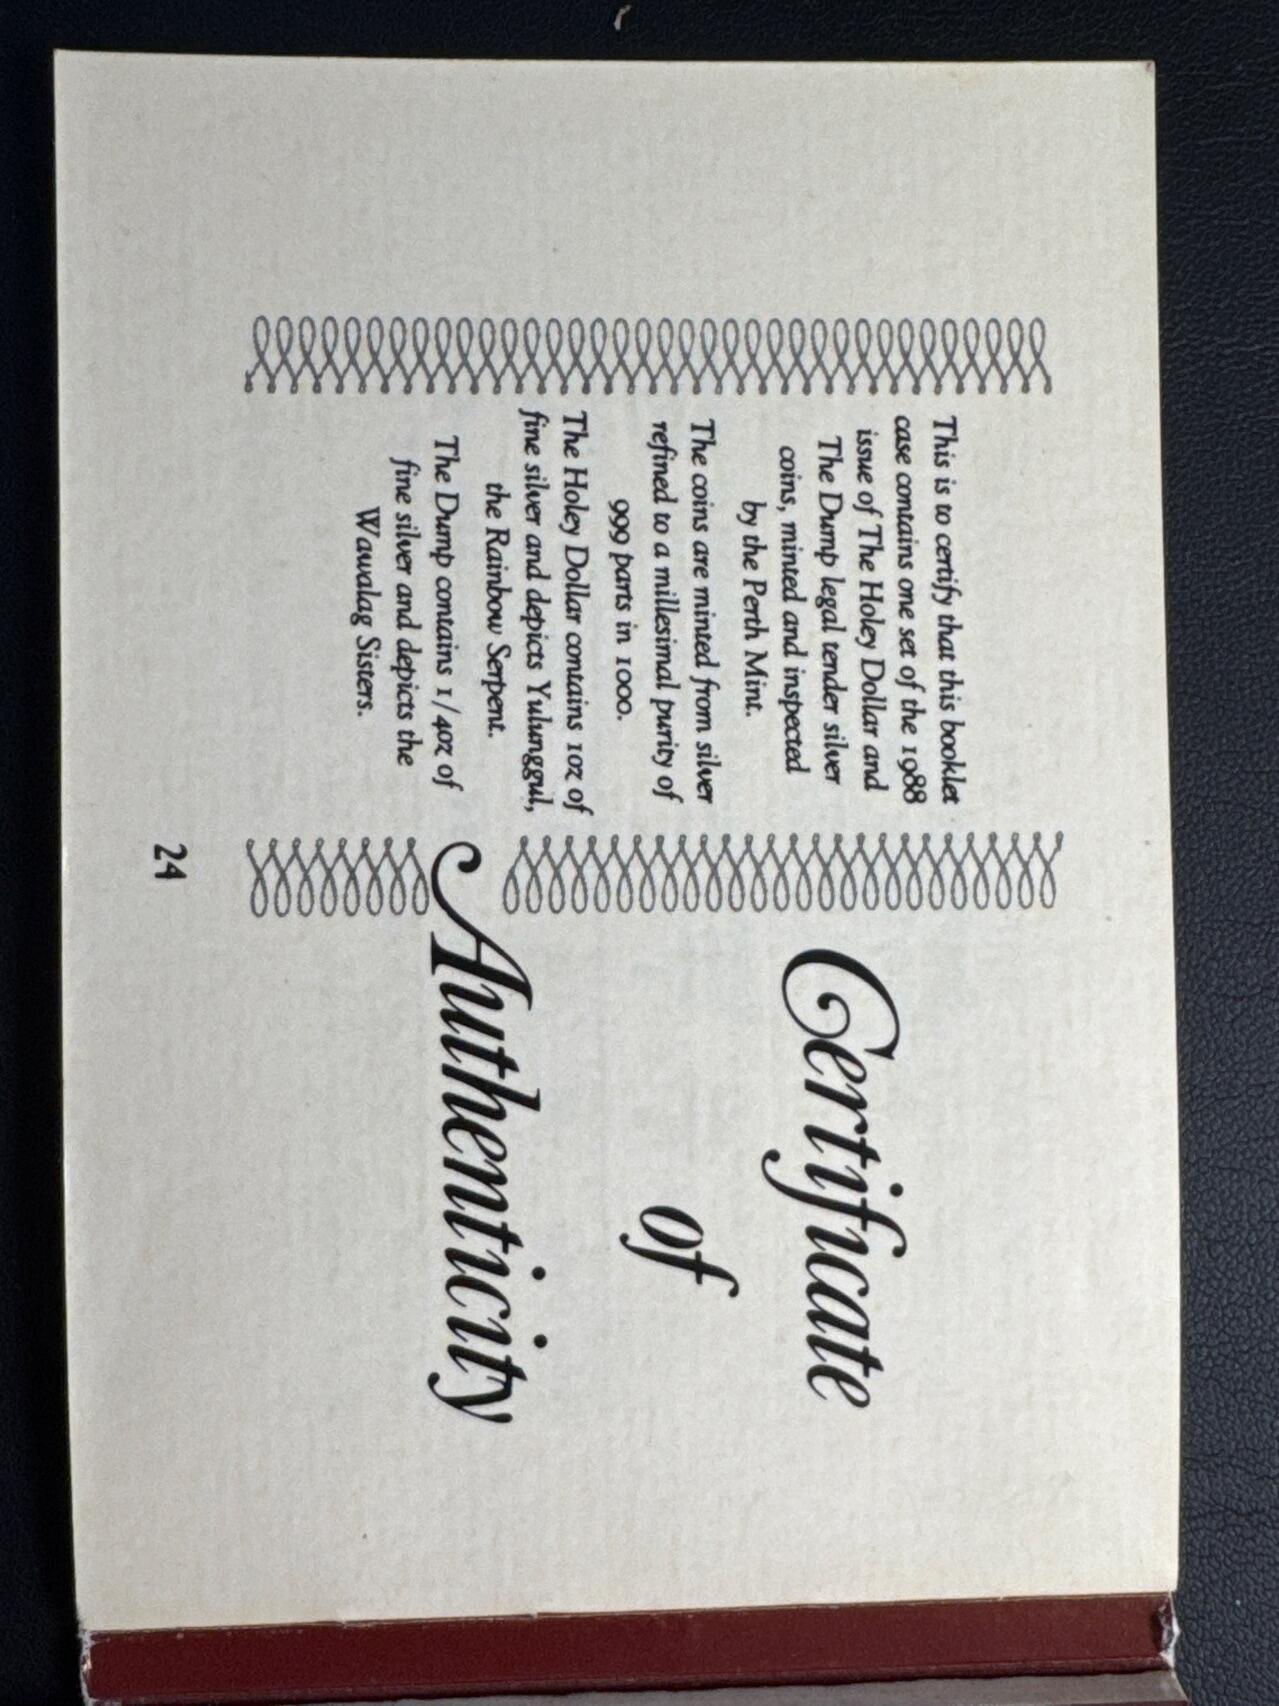 This is to certify that this booklet
case contains one set of the 1988
issue of The Holey Dollar and
The Dump legal tender silver
coins, minted and inspected
by the Perth Mint.
The coins are minted from silver
refined to a millesimal purity of
999 parts in 1000.
The Holey Dollar contains 1oz of
fine silver and depicts Yulunggul,
the Rainbow Serpent.
The Dump contains 1/4oz of
fine silver and depicts the
Wawalag Sisters.
24
Certificate
of
Authenticity